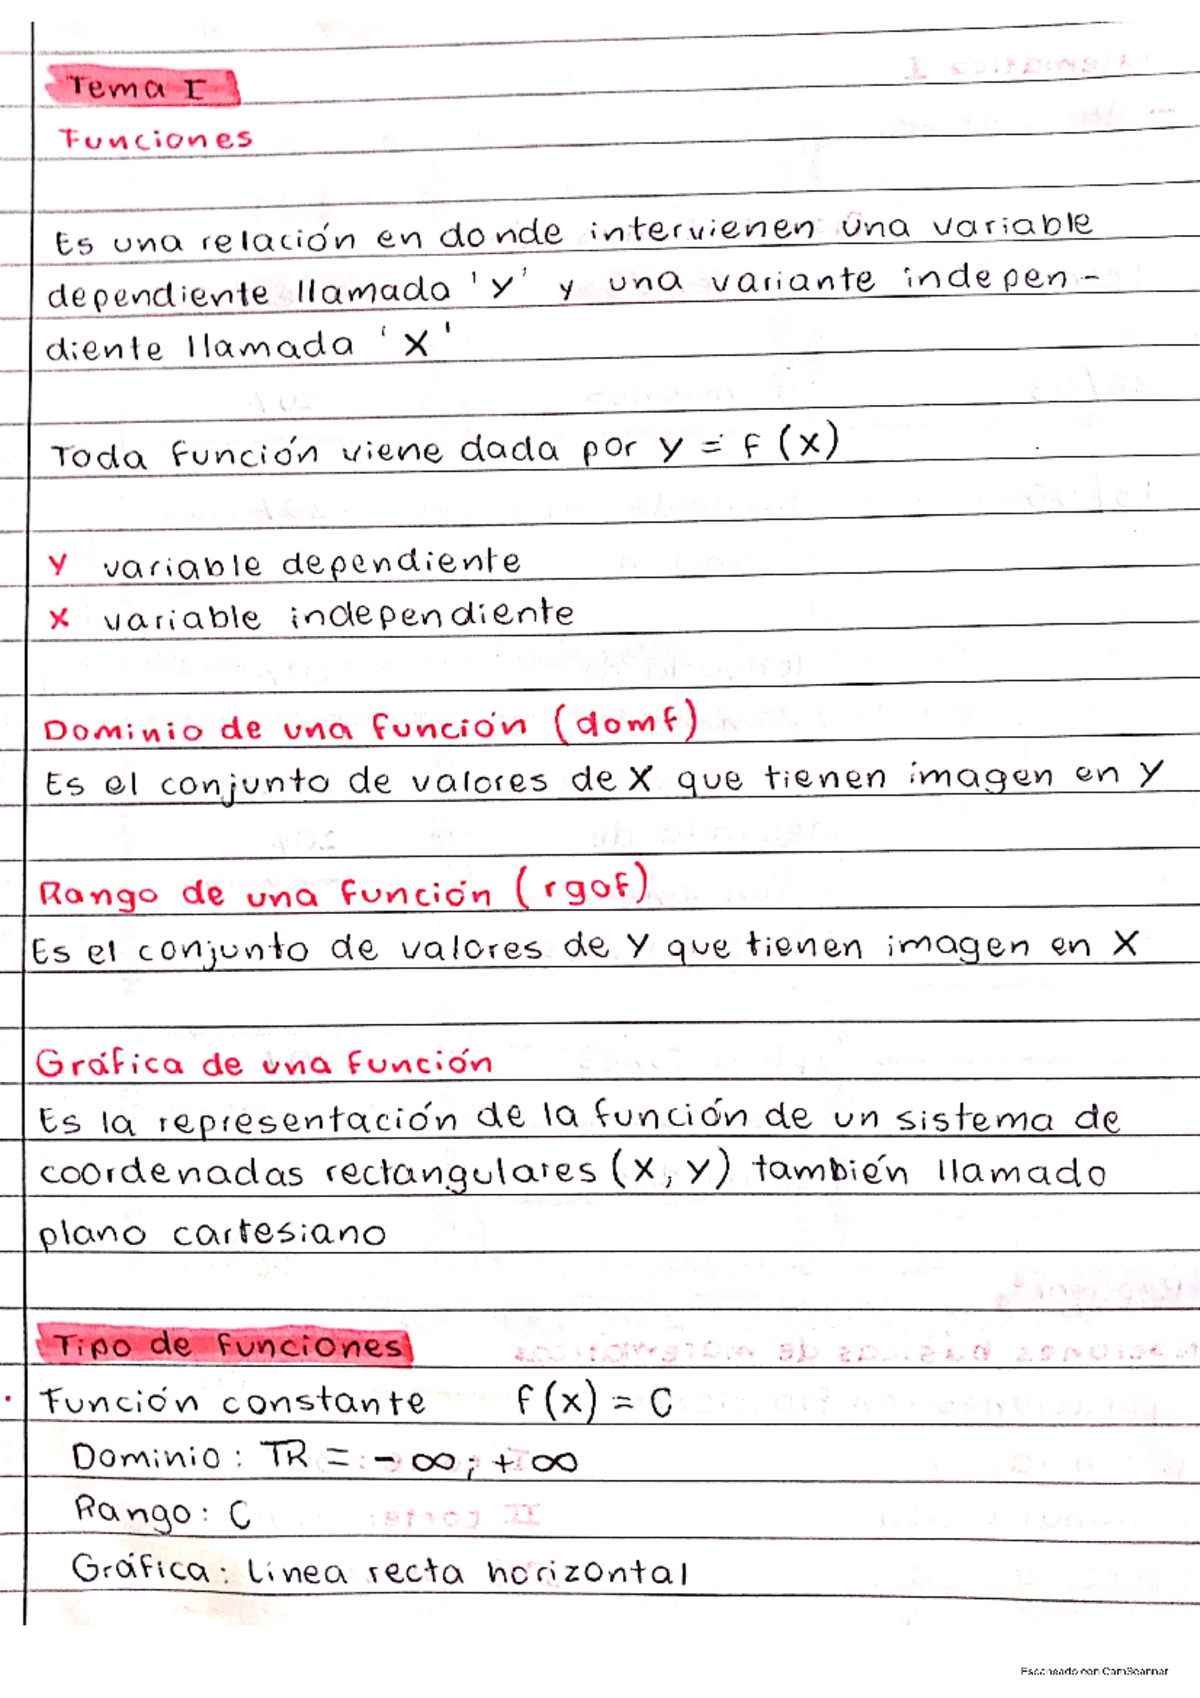 Tema I
Funciones
Es una relación en donde intervienen una variable
dependiente llamada 'y' y una variante indepen-
diente llamada 'X'
Toda función viene dada por y = f (x)
y variable dependiente
x variable independiente
Dominio de una función (domf)
Es el conjunto de valores de X que tienen imagen en y
Rango de una función (rgof)
Es el conjunto de valores de y que tienen imagen en X
Gráfica de una función
Es la representación de la función de un sistema de
coordenadas rectangulares (x, y) también llamado
plano cartesiano
Tipo de funciones
· Función constante f(x) = C
Dominio: TR = - ∞; + ∞
Rango: C
Gráfica: Línea recta horizontal
Escaneado con CamScanner